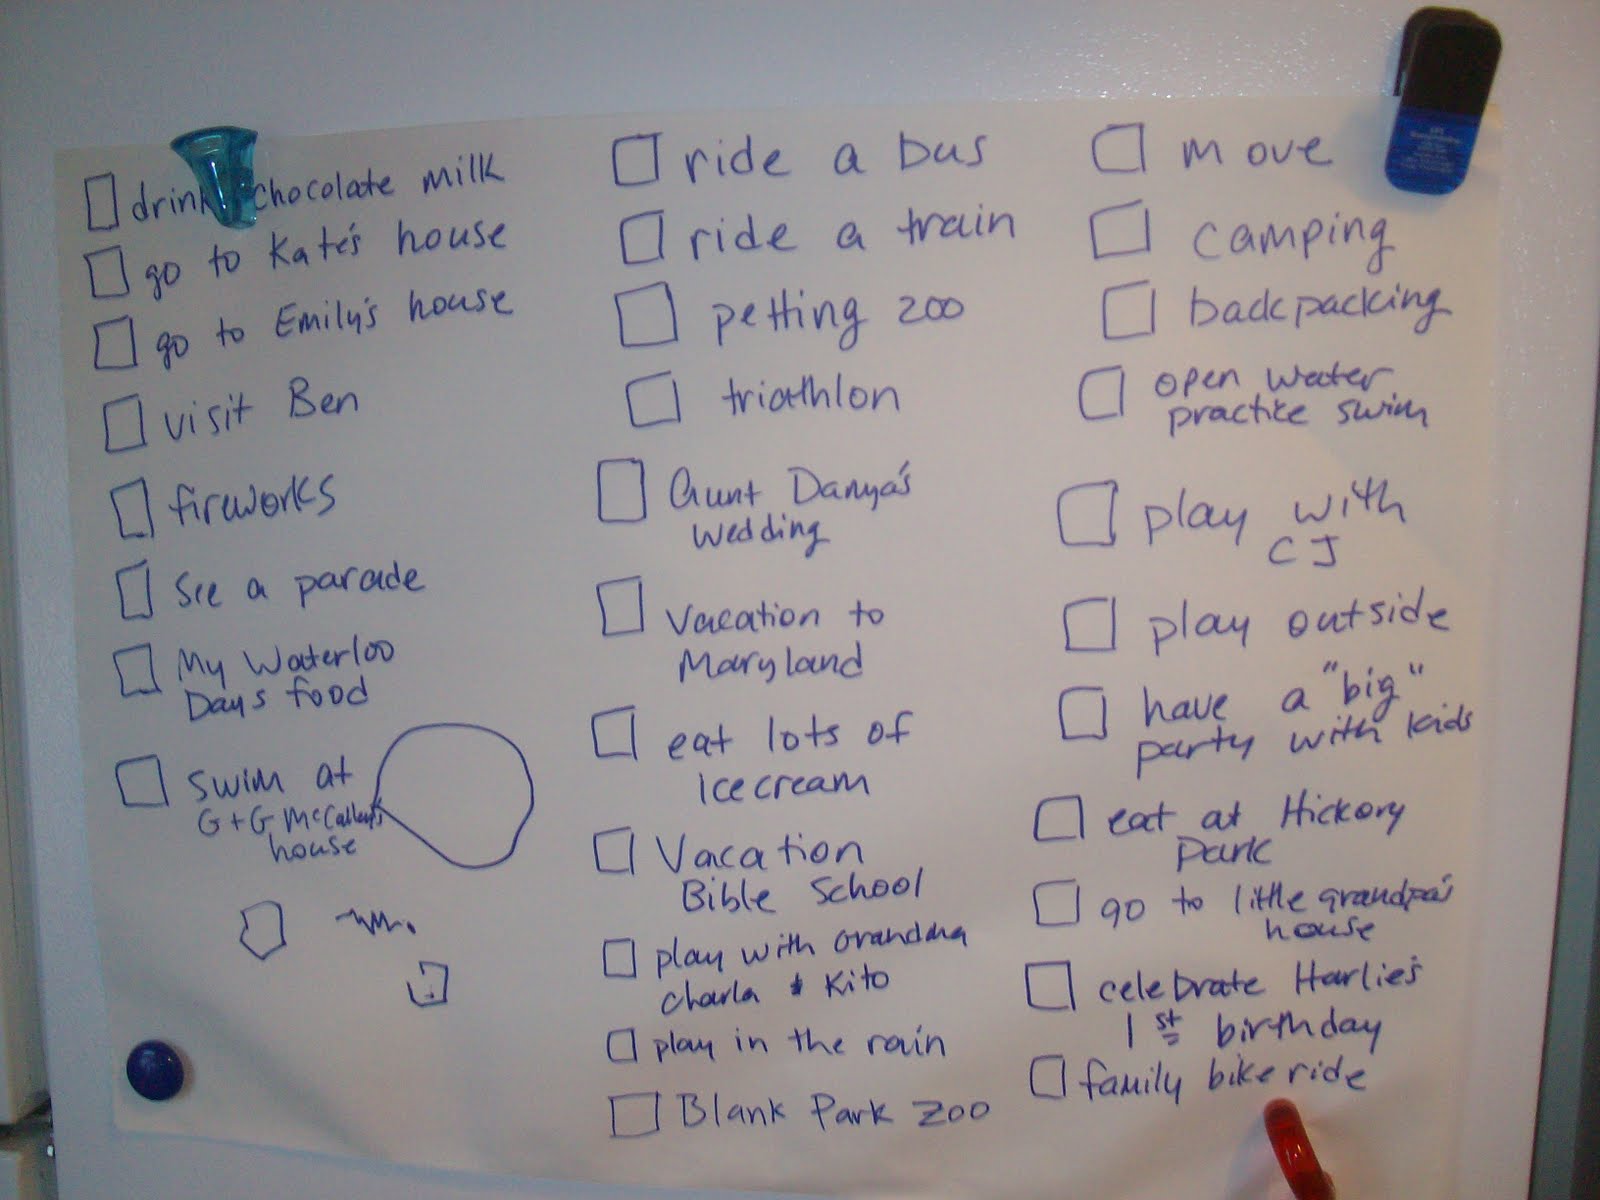 drink chocolate milk
go to Kate's house
go to Emily's house
visit Ben
fireworks
see a parade
My Waterloo
Days food
swim at
G+G McCalley's
house
ride a bus
ride a train
petting zoo
triathlon
Aunt Danya's
wedding
Vacation to
Maryland
eat lots of
Icecream
Vacation
Bible School
play with Grandma
Charla & Kito
play in the rain
Blank Park Zoo
move
camping
backpacking
open water
practice swim
play with
CJ
play outside
have a "big"
party with kids
eat at Hickory
Park
go to little grandpa's
house
celebrate Harlie's
1st birthday
family bike ride